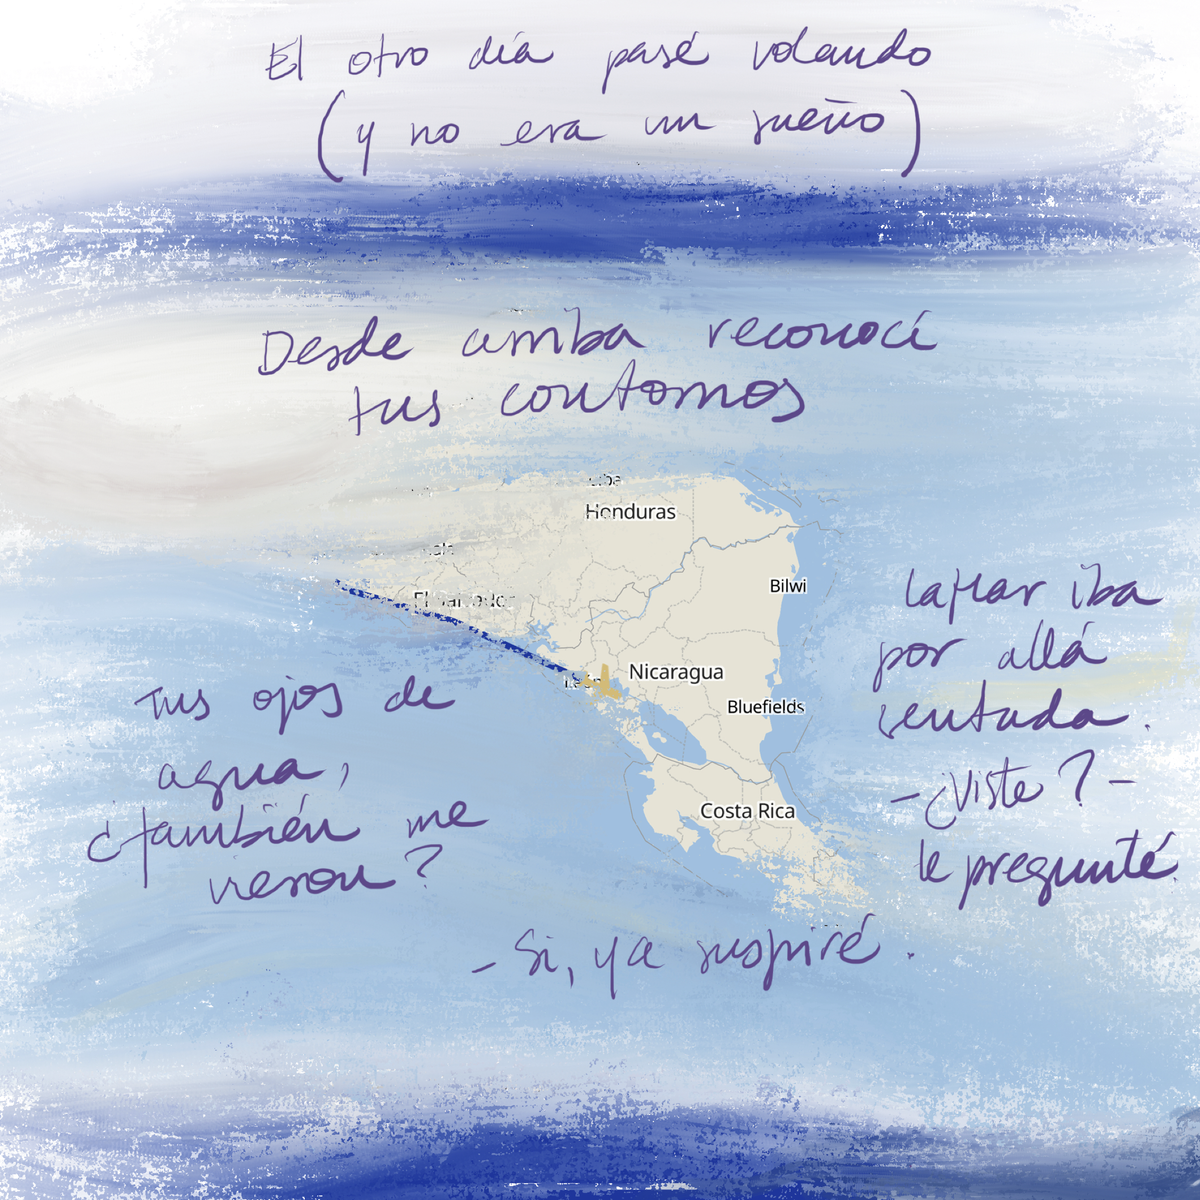 El otro día pasé volando
(y no era un sueño)
Desde arriba reconocí
tus contornos
Honduras
Bilwi
El Salvador
León
Nicaragua
Bluefields
Costa Rica
Tus ojos de
agua,
¿también me
vieron?
iba
por allá
sentada.
-¿Viste?-
le pregunté.
- Si, ya suspiré.